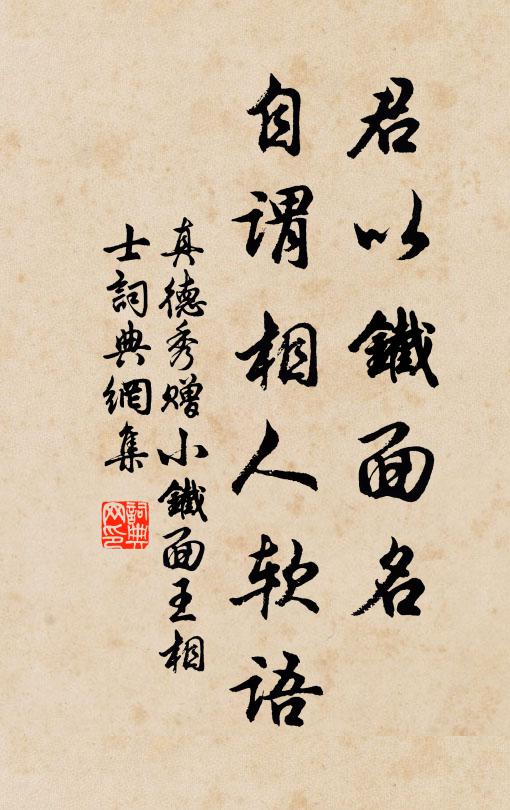 君以鐵面名
自謂相人软語
真德秀贈小鐵面王相
士詞典網集
詞典网印